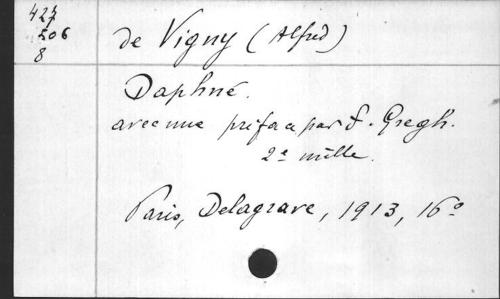 423
506
8
de Vigny (Alfred)
Daphné.
avec une préface par F. Gregh.
2e mille.
Paris, Delagrave, 1913, 16°